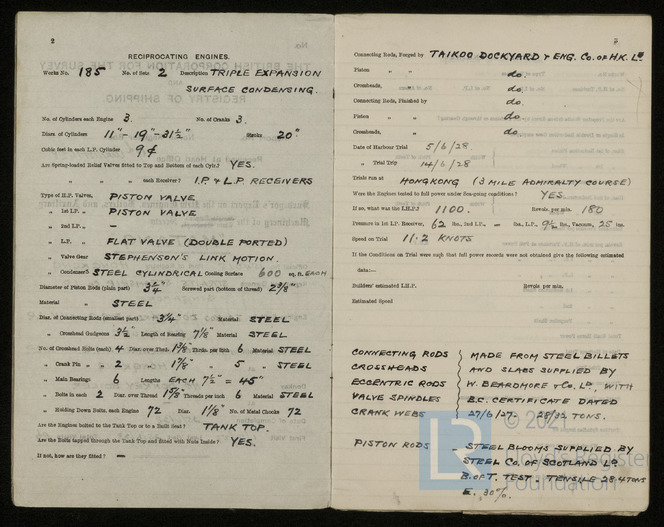 2
RECIPROCATING ENGINES.
Works No. 185 No. of Sets 2 Description TRIPLE EXPANSION
SURFACE CONDENSING.
No. of Cylinders each Engine 3. No. of Cranks 3.
Diars. of Cylinders 11" - 19" - 31½" Stroke 20"
Cubic feet in each L.P. Cylinder 9
Are Spring-loaded Relief Valves fitted to Top and Bottom of each Cylr.? YES.
" " " each Receiver? I.P. & L.P. RECEIVERS
Type of H.P. Valves, PISTON VALVE
" 1st I.P. " PISTON VALVE
" 2nd I.P. " —
" L.P. " FLAT VALVE (DOUBLE PORTED)
" Valve Gear STEPHENSON'S LINK MOTION.
" Condenser S STEEL CYLINDRICAL Cooling Surface 600 sq. ft. EACH
Diameter of Piston Rods (plain part) Screwed part (bottom of thread) 2⅜"
Material " STEEL
Diar. of Connecting Rods (smallest part) 3¼" Material STEEL
" Crosshead Gudgeons 3½" Length of Bearing 7⅛" Material STEEL
No. of Crosshead Bolts (each) 4 Diar. over Thrd. Thrds. per inch 6 Material STEEL
" Crank Pin " 2 " 1⅞" " 5 " STEEL
" Main Bearings 6 Lengths EACH 7½" = 45"
" Bolts in each 2 Diar. over Thread 1⅝" Threads per inch 6 Material STEEL
" Holding Down Bolts, each Engine 72 Diar. 1⅛" No. of Metal Chocks 72
Are the Engines bolted to the Tank Top or to a Built Seat? TANK TOP.
Are the Bolts tapped through the Tank Top and fitted with Nuts Inside? YES.
If not, how are they fitted? —
Connecting Rods, Forged by TAIKOO DOCKYARD & ENG. CO. OF H.K. LTD
Piston " " do.
Crossheads, " do.
Connecting Rods, Finished by do
Piston " " do.
Crossheads, " do
Date of Harbour Trial 5/6/28.
" Trial Trip 14/6/28
Trials run at HONGKONG (3 MILE ADMIRALTY COURSE)
Were the Engines tested to full power under Sea-going conditions? YES.
If so, what was the I.H.P.? 1100. Revols. per min. 180
Pressure in 1st I.P. Receiver, 62 lbs., 2nd I.P., — lbs., L.P., 9½ lbs., Vacuum, 25 ins.
Speed on Trial 11·2 KNOTS
If the Conditions on Trial were such that full power records were not obtained give the following estimated
data:—
Builders' estimated I.H.P. Revols. per min.
Estimated Speed
CONNECTING RODS MADE FROM STEEL BILLETS
CROSSHEADS AND SLABS SUPPLIED BY
ECCENTRIC RODS W. BEARDMORE & CO. LD., WITH
VALVE SPINDLES B.C. CERTIFICATE DATED
CRANK WEBS 27/6/27. 28/32 TONS.
PISTON RODS - STEEL BLOOMS SUPPLIED BY
STEEL CO. OF SCOTLAND LD
B. OF T. TEST - TENSILE 28.4 TONS
E. 30%.
© 2021
LR
Lloyd's Register
Foundation